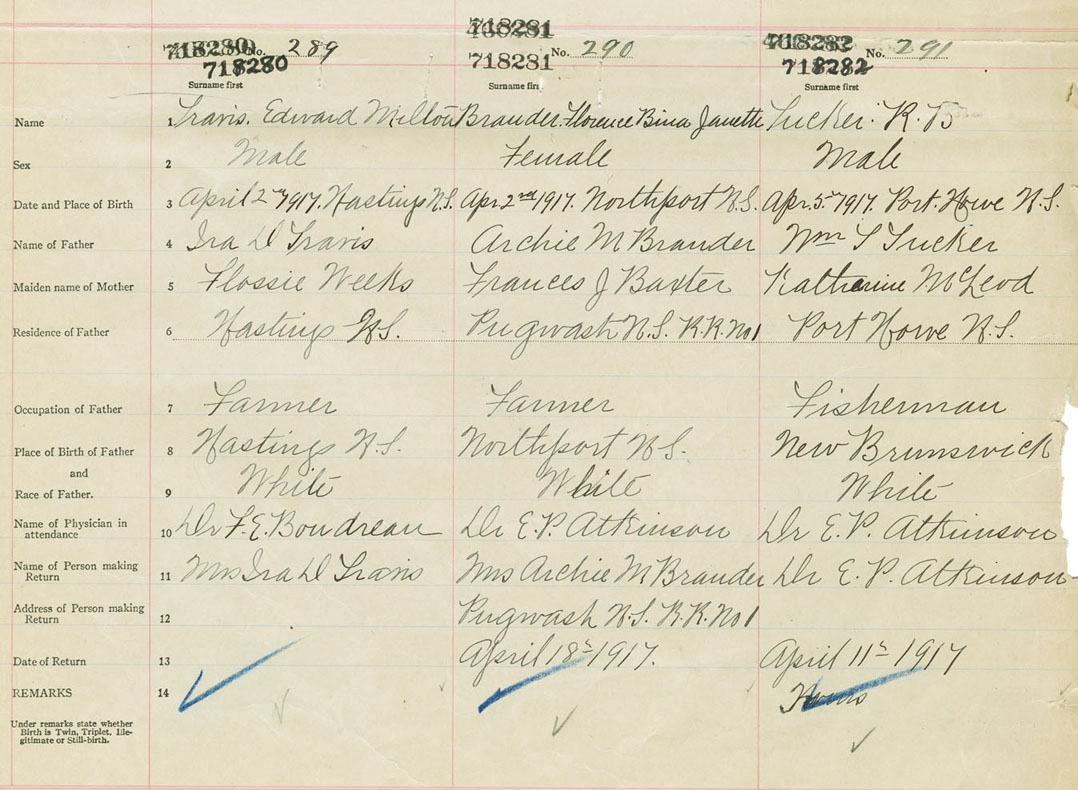 718280 No. 289 718281 No. 290 718282 No. 291
718280 718281 718282
Surname first Surname first Surname first
Name 1 Travis, Edward Milton Brander. Florence Bina Janette Tucker. R. B
Sex 2 Male Female Male
Date and Place of Birth 3 April 2nd 1917. Hastings N.S. Apr. 2nd 1917. Northport N.S. Apr. 5th 1917. Port. Howe N.S.
Name of Father 4 Ira D Travis Archie M Brander Wm S Tucker
Maiden name of Mother 5 Flossie Weeks Frances J Baxter Katherine McLeod
Residence of Father 6 Hastings N.S. Pugwash N.S. R.R. No 1 Port Howe N.S.
Occupation of Father 7 Farmer Farmer Fisherman
Place of Birth of Father 8 Hastings N.S. Northport N.S. New Brunswick
and
Race of Father. 9 White White White
Name of Physician in attendance 10 Dr F. E. Boudreau Dr E. P. Atkinson Dr E. P. Atkinson
Name of Person making Return 11 Mrs Ira D Travis Mrs Archie M Brander Dr E. P. Atkinson
Address of Person making Return 12 Pugwash N.S. R.R. No 1
Date of Return 13 April 18th 1917. April 11th 1917
REMARKS 14 Twins
Under remarks state whether
Birth is Twin, Triplet, Ille-
gitimate or Still-birth.